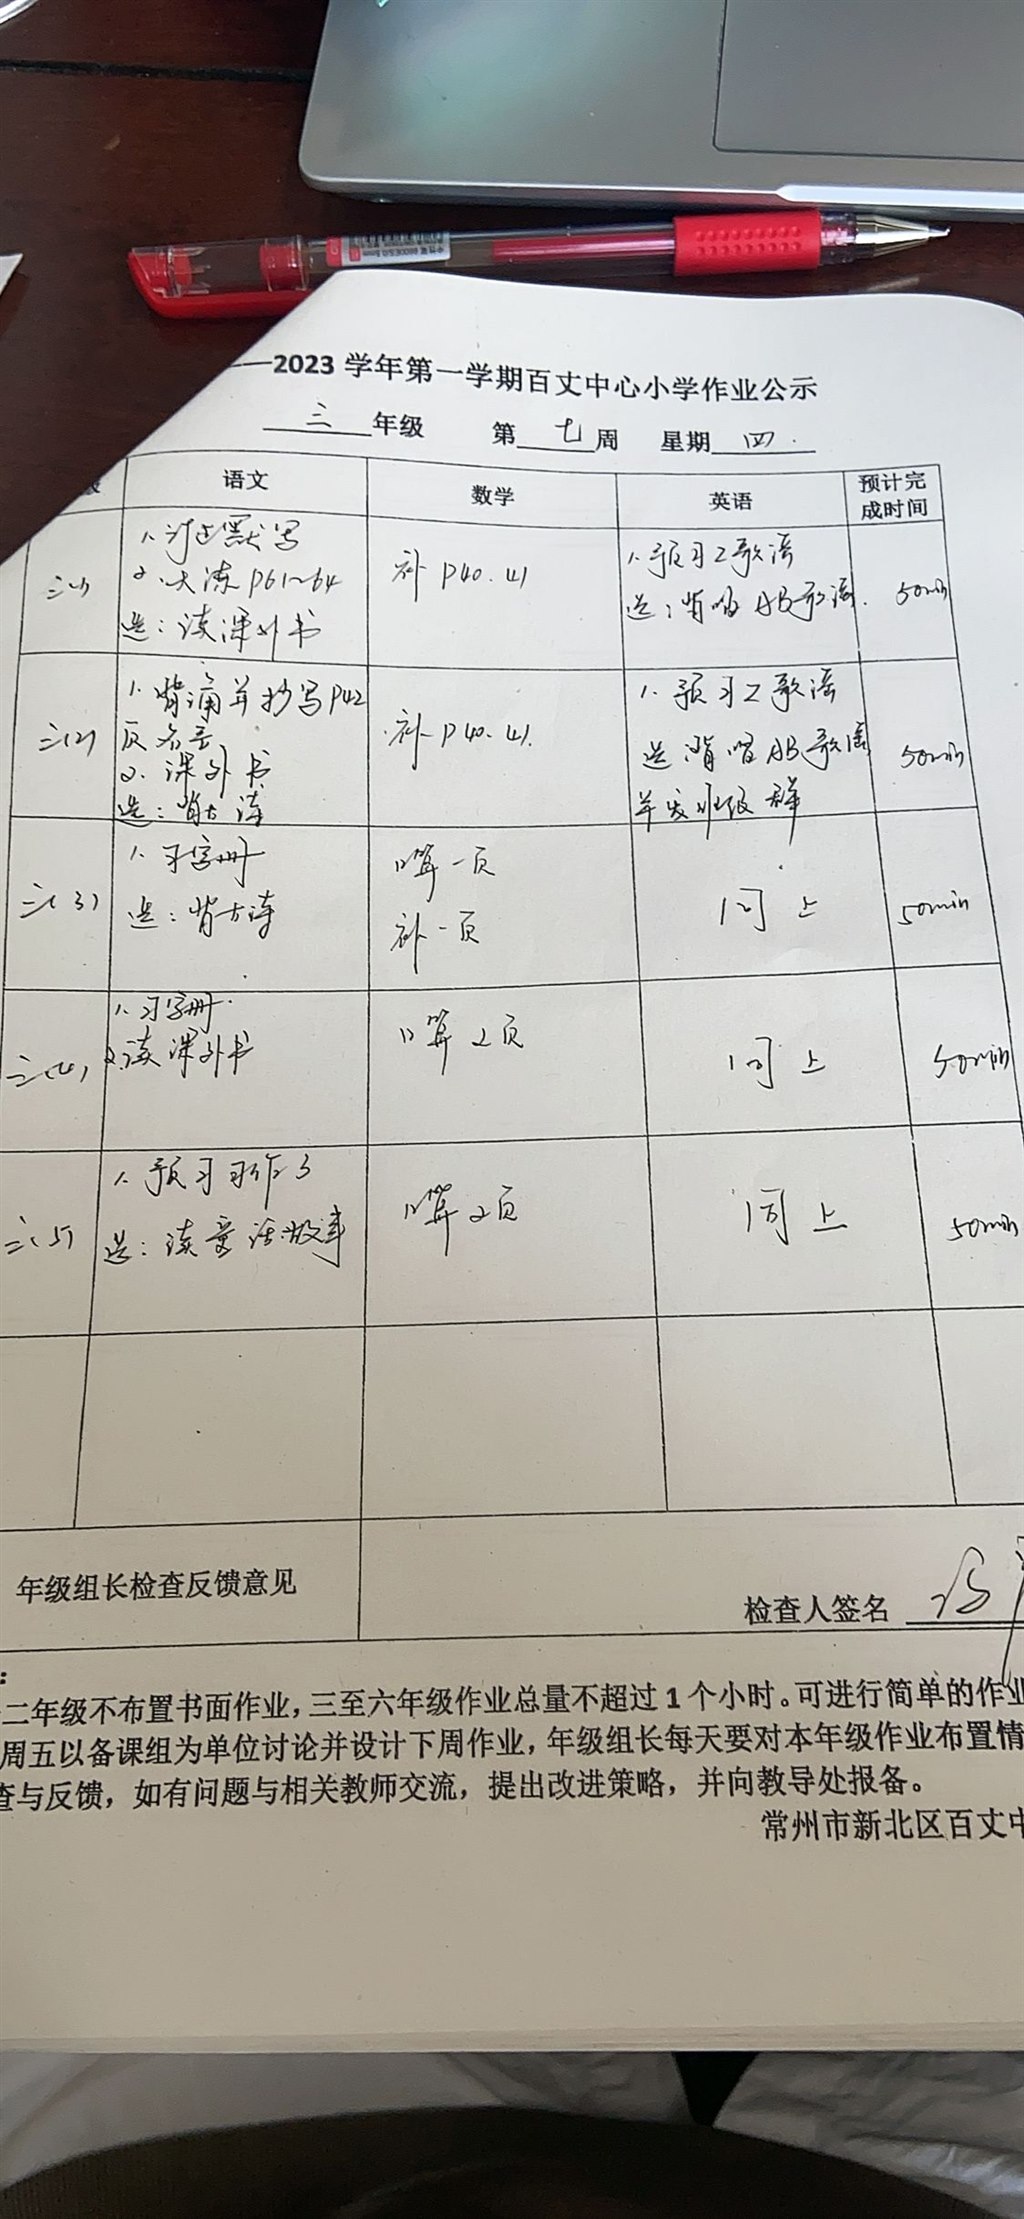 ——2023 学年第一学期百丈中心小学作业公示
三 年级 第 七 周 星期 四
语文 数学 英语 预计完成时间
三(1)
1. 过过默写
2. 大练 P61~64
选：读课外书
补 P40. 41
1. 预习Z歌谣
选：背唱AB歌谣.
50min
三(2)
1. 背诵并抄写P42
2. 课外书
选：背古诗
补 P40. 41.
1. 预习Z歌谣
选：背唱AB歌谣
并发班级群
50min
三(3)
1. 习字册
选：背古诗
口算一页
补一页
同上
50min
三(4)
1. 习字册.
2. 读课外书
口算2页
同上
50min
三(5)
1. 预习习作3
选：读童话故事
口算2页
同上
50min
年级组长检查反馈意见
检查人签名
：
二年级不布置书面作业，三至六年级作业总量不超过 1 个小时。可进行简单的作业
周五以备课组为单位讨论并设计下周作业，年级组长每天要对本年级作业布置情
查与反馈，如有问题与相关教师交流，提出改进策略，并向教导处报备。
常州市新北区百丈中